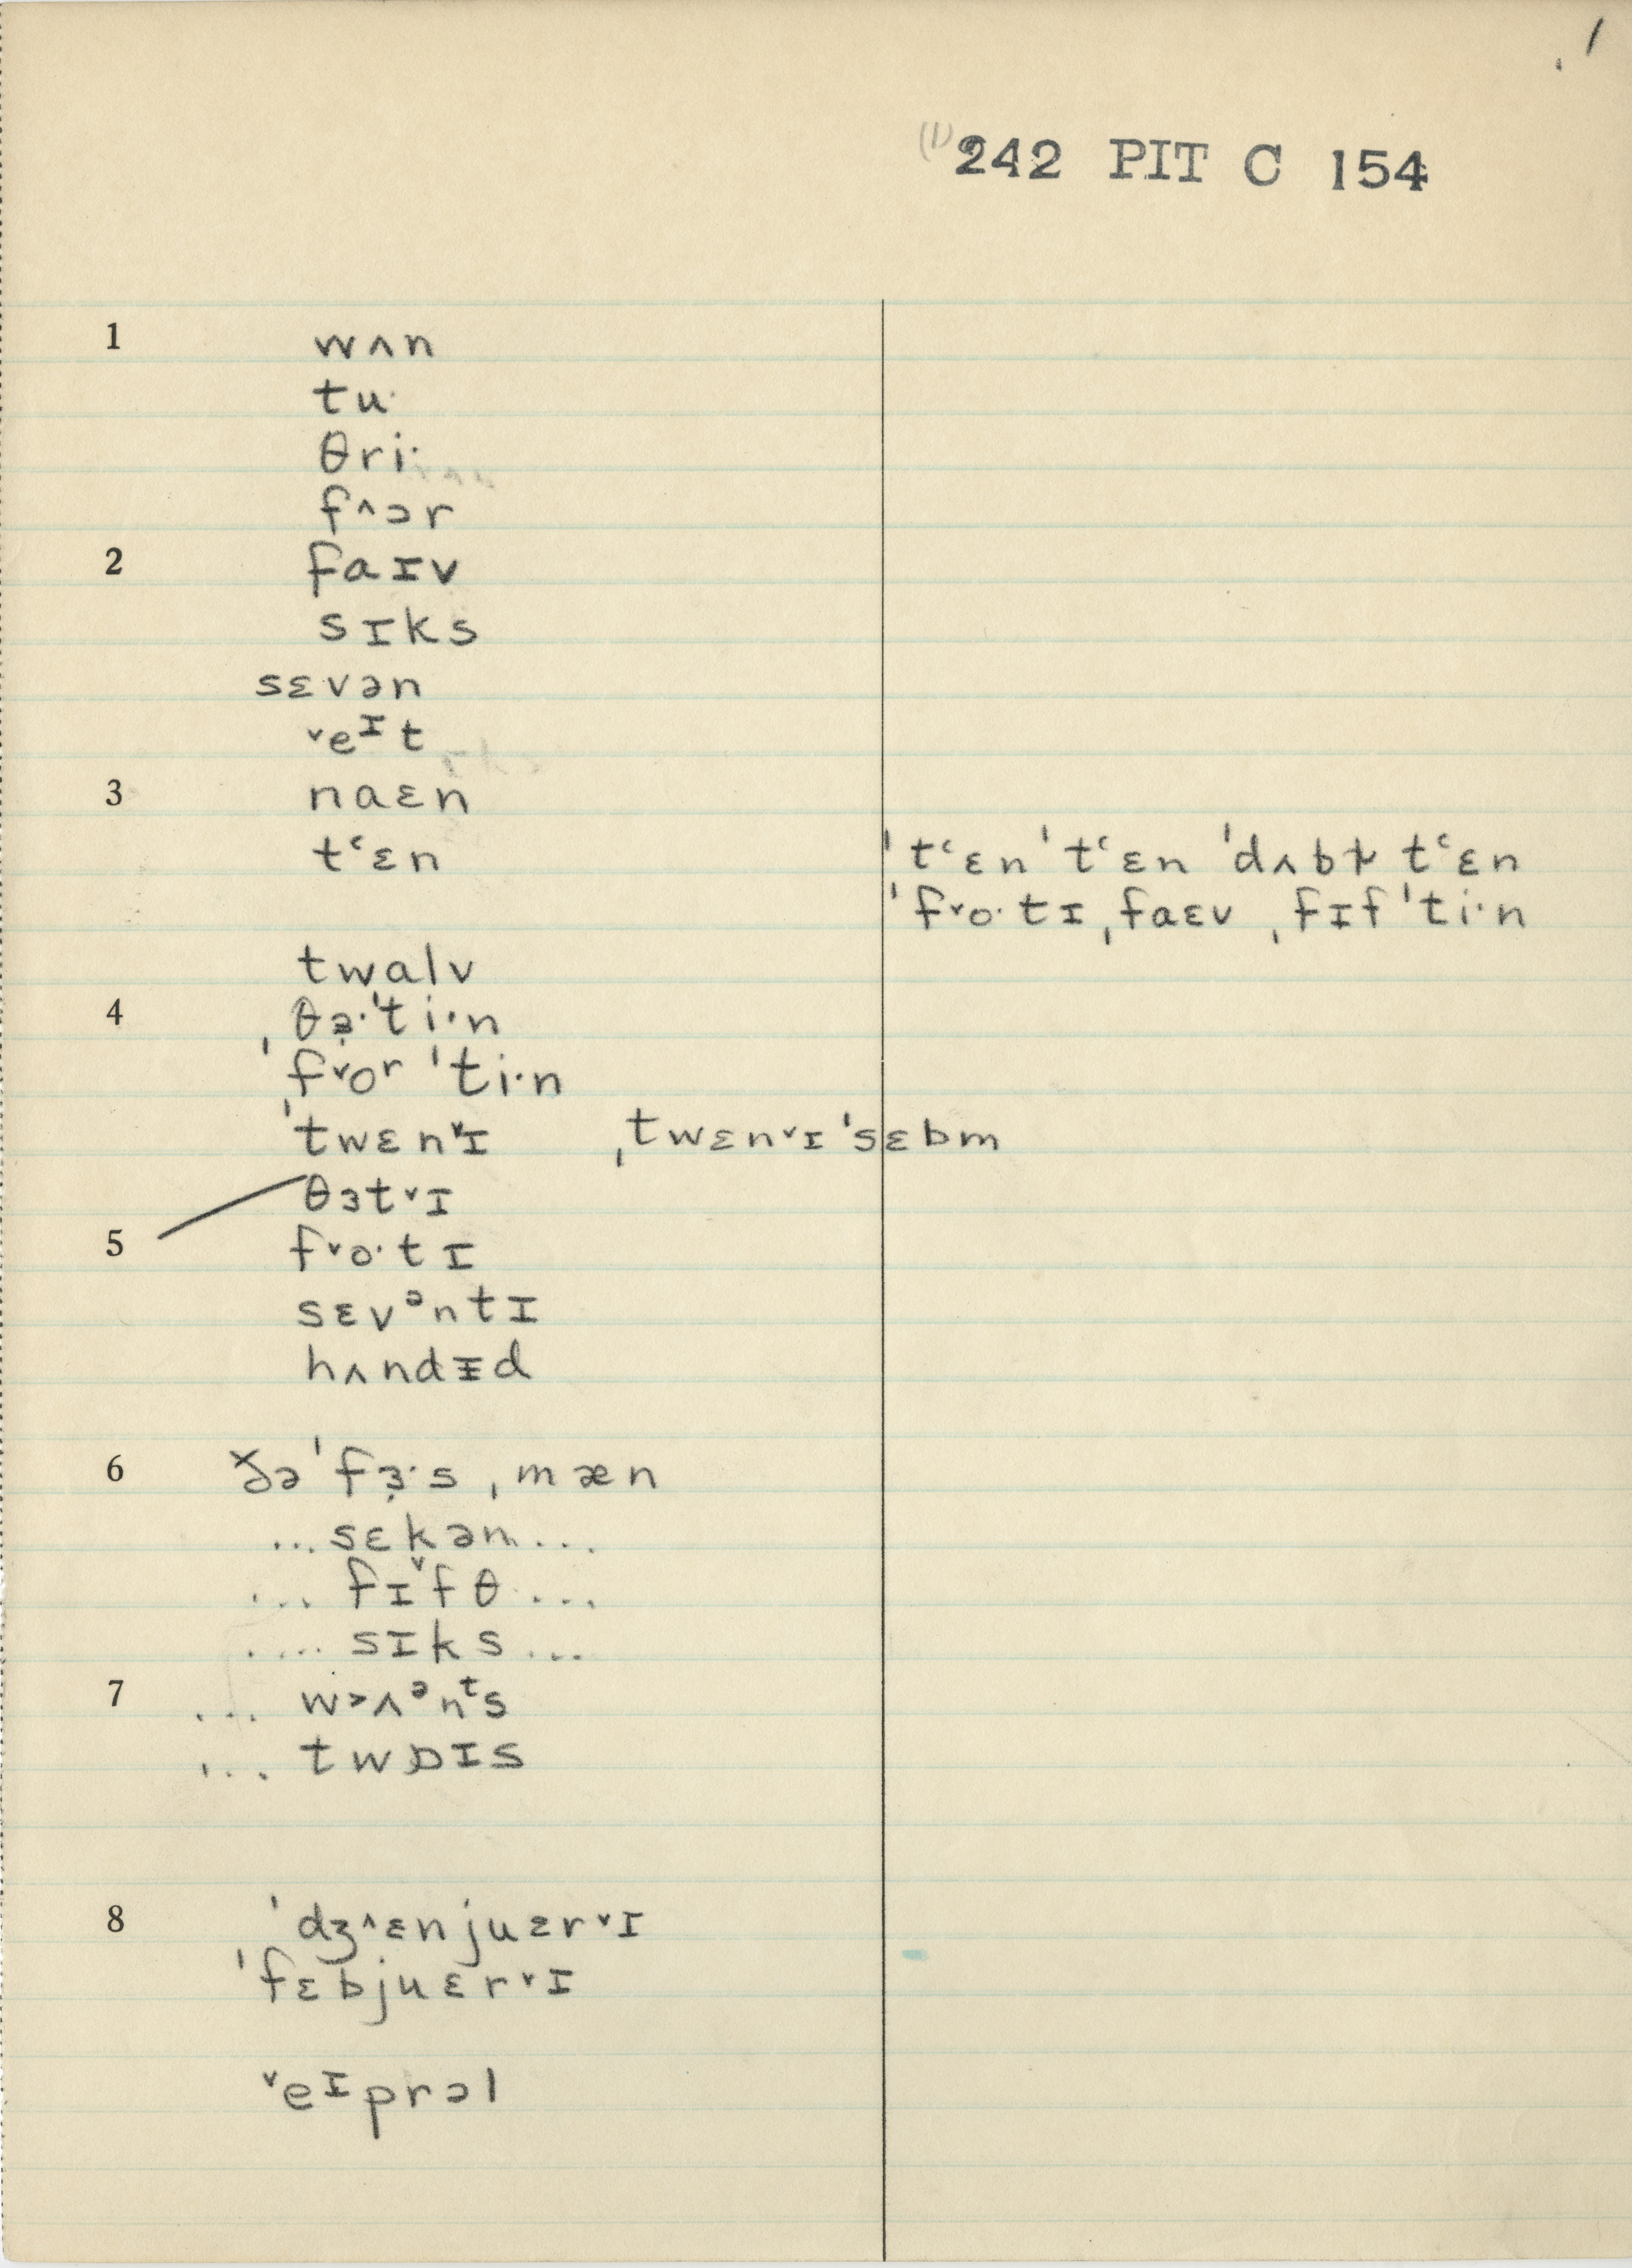 1
(1) 242 PIT C 154
1 wʌn
tu·
θri·
f˄ɔr
2 faɪv
sɪks
sɛvən
˅eᶦt
3 naɛn
tʻɛn 'tʻɛn 'tʻɛn 'dʌbɫ tʻɛn
'f˅o·tɪ ˌfaɛv ˌfɪf'ti·n
twalv
4 ˌθə̣·'ti·n
'f˅oʳ 'ti·n
'twɛn˅ɪ ˌtwɛn˅ɪ'sɛbm
θɜt˅ɪ
5 f˅o·tɪ
sɛvᵊntɪ
hʌndɪ̵d
6 ðə 'fɜ̣·s ˌmæn
...sɛkən...
... fɪ˅fθ ...
.... sɪks ...
7 ... w˃ʌᵊnᵗs
... twɒɪs
8 'dʒ˄ɛnjuɛr˅ɪ
'fɛbjuɛr˅ɪ
˅eᶦprəl